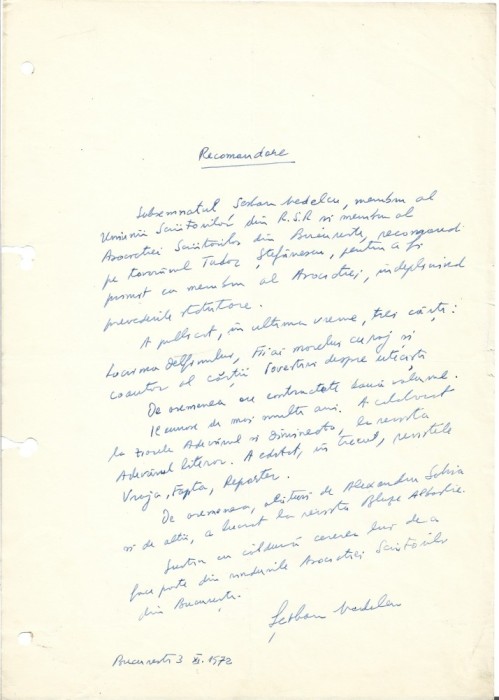 Recomandare
Subsemnatul Serban Nedelcu, membru al
Uniunii Scriitorilor din R.S.R și membru al
Asociației Scriitorilor din București, recomand
pe tovarășul Tudor Ștefănescu, pentru a fi
primit ca membru al Asociației, îndeplinind
prevederile statutare.
A publicat, în ultima vreme, trei cărți:
Lacrima delfinului, Fii-ai moșului curaj și
coautor al cărții Povestiri despre uteciști
De asemenea are contractate două volume.
Îl cunosc de mai mulți ani. A colaborat
la ziarele Adevărul și Dimineața, la revista
Adevărul literar. A editat, în trecut, revistele
Vraja, Fapta, Reporter.
De asemenea, alături de Alexandru Sahia
și de alții, a lucrat la revista Albastre.
Susțin cu căldură cererea lui de a
face parte din rândurile Asociației Scriitorilor
din București.
Șerban Nedelcu
București 3 XI. 1972